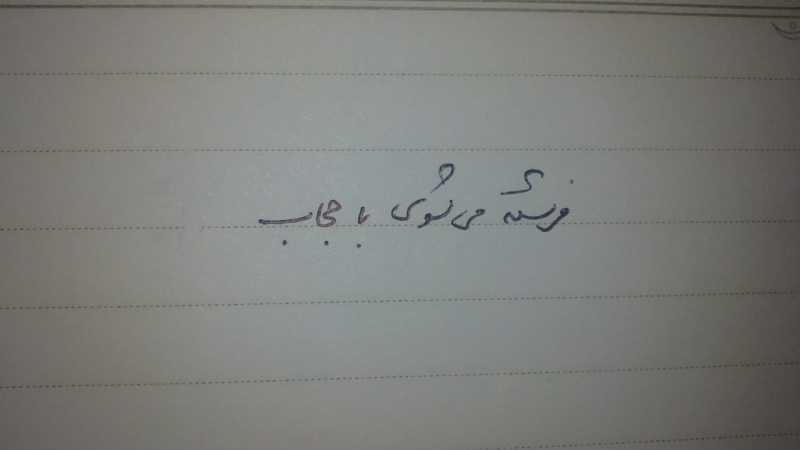 فرشته می شوی با حجاب